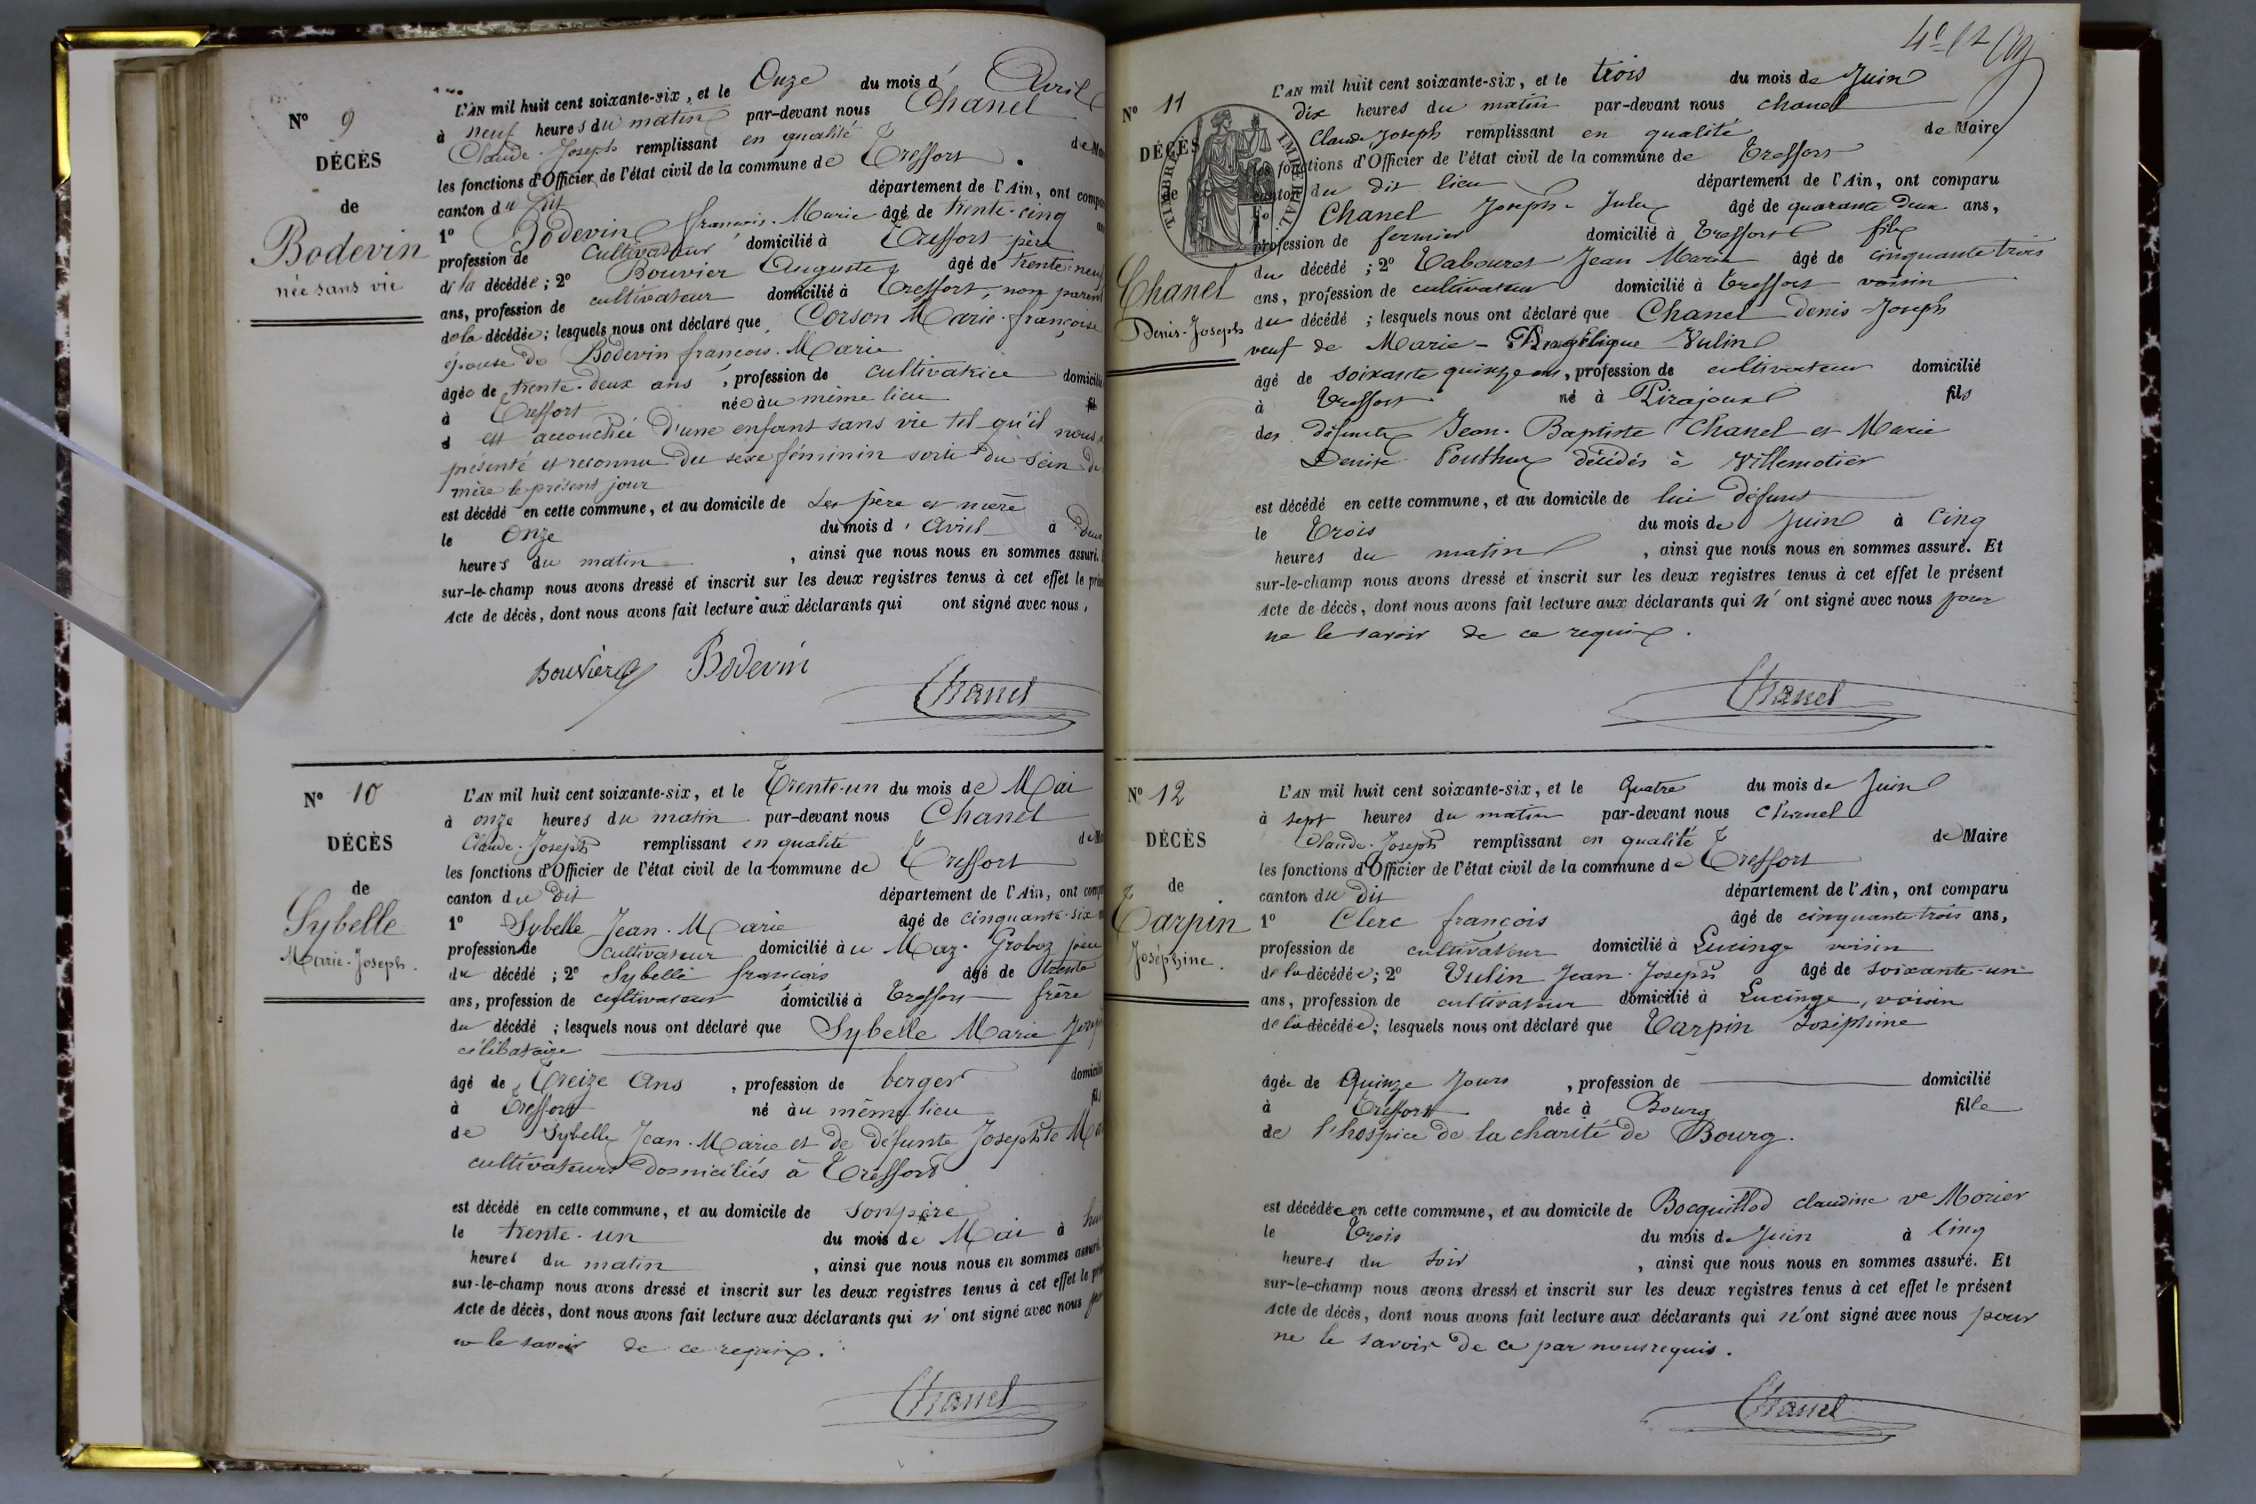 N° 9
DÉCÈS
de
Bodevin
née sans vie
L'AN mil huit cent soixante-six, et le Onze du mois d' Avril
à neuf heures du matin par-devant nous Chanel
Claude-Joseph remplissant en qualité de
les fonctions d'Officier de l'état civil de la commune de Treffort
canton du dit département de l'Ain, ont
1° Bodevin françois-Marie âgé de trente-cinq
profession de cultivateur domicilié à Treffort père
de la décédée; 2° Bouvier Auguste âgé de trente-neuf
ans, profession de cultivateur domicilié à Treffort, non parent
de la décédée; lesquels nous ont déclaré que Corson Marie-françoise
épouse de Bodevin françois-Marie
âgée de trente-deux ans, profession de cultivatrice
à Treffort née au même lieu
est accouchée d'une enfant sans vie tel qu'il nous
présenté et reconnu du sexe féminin sorti du sein de
mère le présent jour
est décédé en cette commune, et au domicile de ses père et mère
le Onze du mois d'Avril à deux
heures du matin, ainsi que nous nous en sommes assuré.
sur-le-champ nous avons dressé et inscrit sur les deux registres tenus à cet effet le
Acte de décès, dont nous avons fait lecture aux déclarants qui ont signé avec nous,
Bouvier Bodevin
Chanel
N° 10
DÉCÈS
de
Sybelle
Marie-Joseph.
L'AN mil huit cent soixante-six, et le Trente-un du mois de Mai
à onze heures du matin par-devant nous Chanel
Claude-Joseph remplissant en qualité de
les fonctions d'Officier de l'état civil de la commune de Treffort
canton du dit département de l'Ain, ont
1° Sybelle Jean-Marie âgé de cinquante-six
profession de cultivateur domicilié à
du décédé; 2° Sybelle françois âgé de trente
ans, profession de cultivateur domicilié à Treffort frère
du décédé; lesquels nous ont déclaré que Sybelle Marie
célibataire
âgé de Treize ans, profession de berger
à Treffort né au même lieu
de Sybelle Jean-Marie et de défunte Josephte
cultivateurs domiciliés à Treffort
est décédé en cette commune, et au domicile de son père
le trente-un du mois de Mai à
heures du matin, ainsi que nous nous en sommes assuré.
sur-le-champ nous avons dressé et inscrit sur les deux registres tenus à cet effet le
Acte de décès, dont nous avons fait lecture aux déclarants qui n'ont signé avec nous
le savoir de ce requis.
Chanel
N° 11
DÉCÈS
de
TIMBRE IMPÉRIAL
Chanel
Denis-Joseph
L'AN mil huit cent soixante-six, et le trois du mois de Juin
dix heures du matin par-devant nous chanel
Claude Joseph remplissant en qualité de Maire
les fonctions d'Officier de l'état civil de la commune de Treffort
canton du dit lieu département de l'Ain, ont comparu
1° Chanel Joseph-Jules âgé de quarante deux ans,
profession de fermier domicilié à Treffort fils
du décédé; 2° Tabouret Jean Marie âgé de cinquante trois
ans, profession de cultivateur domicilié à Treffort voisin
du décédé; lesquels nous ont déclaré que Chanel denis-Joseph
veuf de Marie-Angélique Vulin
âgé de soixante quinze ans, profession de cultivateur domicilié
à Treffort né à Pirajoux fils
des défunts Jean-Baptiste Chanel et Marie
Denise décédés à Villemotier
est décédé en cette commune, et au domicile de lui défunt
le Trois du mois de Juin à Cinq
heures du matin, ainsi que nous nous en sommes assuré. Et
sur-le-champ nous avons dressé et inscrit sur les deux registres tenus à cet effet le présent
Acte de décès, dont nous avons fait lecture aux déclarants qui n'ont signé avec nous pour
ne le savoir de ce requis.
Chanel
N° 12
DÉCÈS
de
Tarpin
Joséphine.
L'AN mil huit cent soixante-six, et le Quatre du mois de Juin
à sept heures du matin par-devant nous Chanel
Claude-Joseph remplissant en qualité de Maire
les fonctions d'Officier de l'état civil de la commune de Treffort
canton du dit département de l'Ain, ont comparu
1° Clerc françois âgé de cinquante trois ans,
profession de cultivateur domicilié à Lucinge voisin
de la décédée; 2° Vulin Jean-Joseph âgé de soixante-un
ans, profession de cultivateur domicilié à Lucinge, voisin
de la décédée; lesquels nous ont déclaré que Tarpin Joséphine
âgée de Quinze Jours, profession de domicilié
à Treffort née à Bourg fille
de l'hospice de la charité de Bourg.
est décédée en cette commune, et au domicile de Bocquillod claudine ve Morier
le Trois du mois de Juin à Cinq
heures du soir, ainsi que nous nous en sommes assuré. Et
sur-le-champ nous avons dressé et inscrit sur les deux registres tenus à cet effet le présent
Acte de décès, dont nous avons fait lecture aux déclarants qui n'ont signé avec nous pour
ne le savoir de ce par nous requis.
Chanel